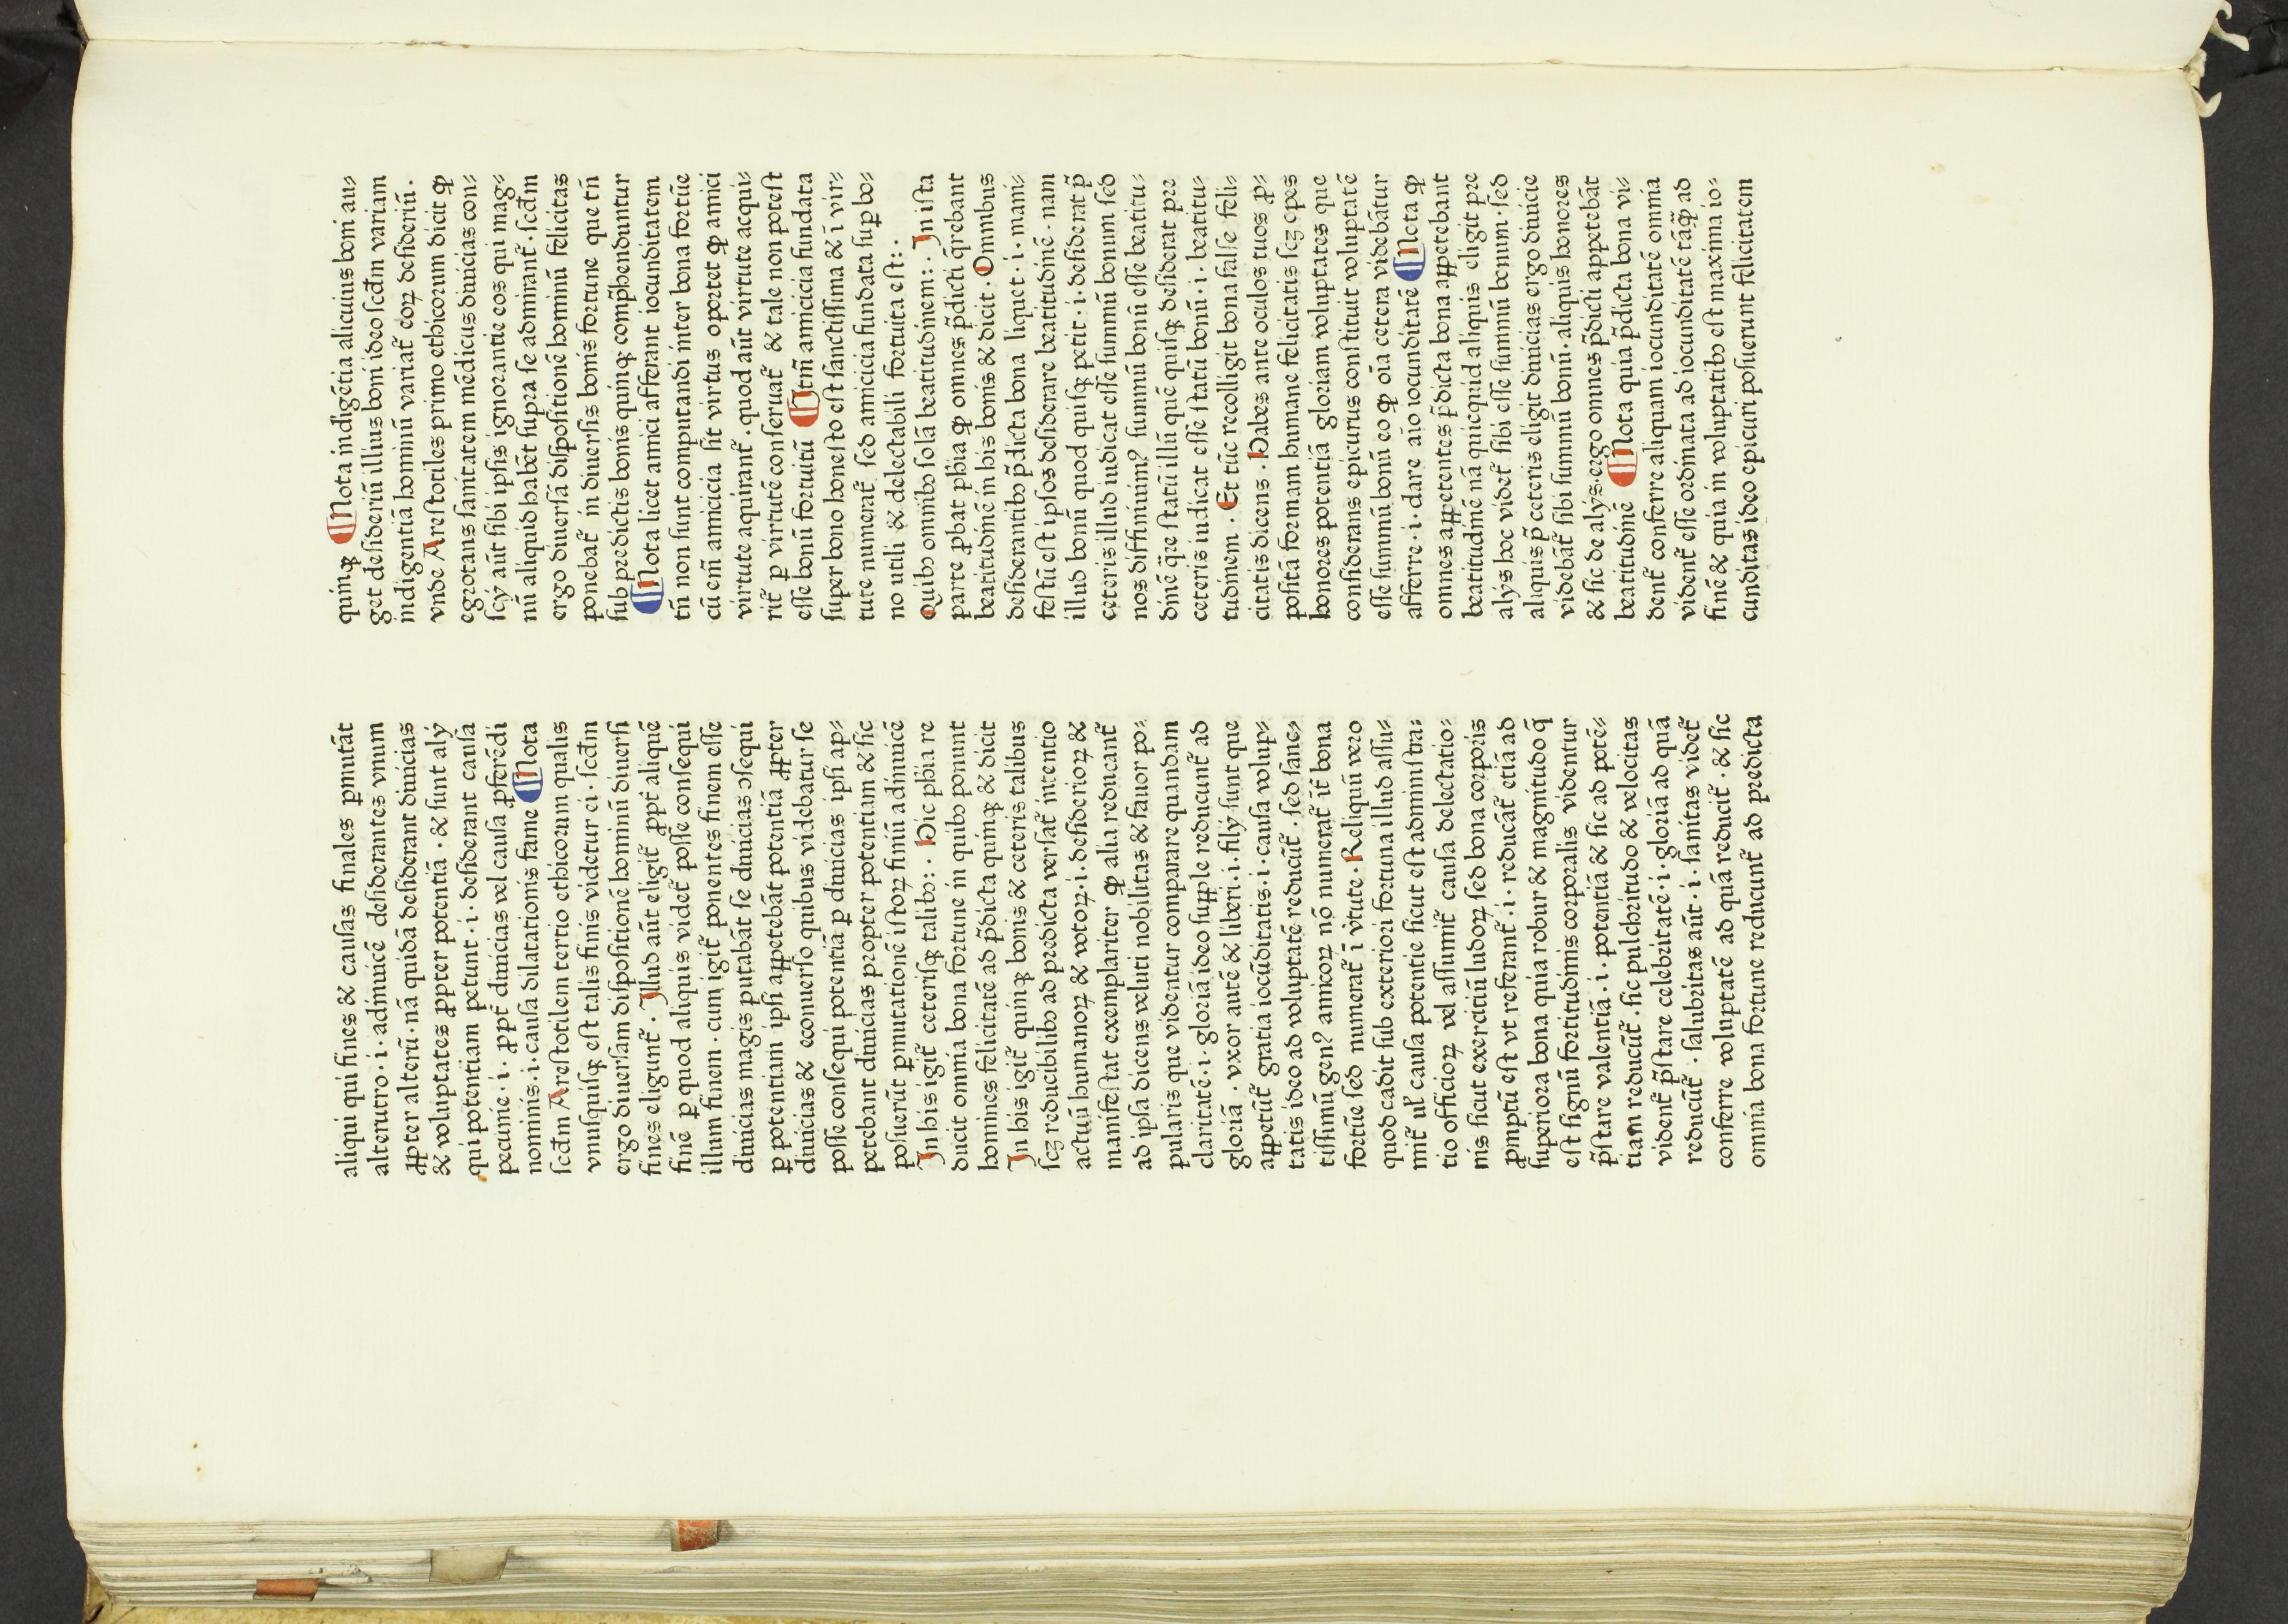 aliqui qui fines & cauſas finales ꝑmutāt
alterutro · i · adinuicē deſiderantes vnum
ꝓpter alterū · nā quidā deſiderant diuicias
& voluptates ꝓpter potentiā · & ſunt alij
qui potentiam petunt · i · deſiderant cauſa
pecunie · i · ꝓpt̄ diuicias vel cauſa ꝓferēdi
nominis · i · cauſa dilatationis fame ¶ Nota
ſcd̄m Areſtotilem tertio ethicorum qualis
vnuſquiſqꝫ eſt talis finis videtur ei · ſcd̄m
ergo diuerſam diſpoſitionē hominū diuerſi
fines eligunt̄ · Illud aūt eligit̄ ꝓpt̄ aliquē
finē ꝑ quod aliquis videt̄ poſſe conſequi
illum finem · cum igit̄ ponentes finem eſſe
diuicias magis putabāt ſe diuicias ↄſequi
ꝑ potentiam ipſi appetebāt potentiā ꝓpter
diuicias & econuerſo quibus videbatur ſe
poſſe conſequi potentiā ꝑ diuicias ipſi ap⸗
petebant diuicias propter potentiam & ſic
poſuerūt ꝑmutationē iſtoꝝ finiū adinuicē
In his igit̄ ceteriſqꝫ talibꝫ : · Hic phia re
ducit omnia bona fortune in quibꝫ ponunt
homines felicitatē ad p̄dicta quinqꝫ & dicit
In his igit̄ quinqꝫ bonis & ceteris talibus
ſcꝫ reducibilibꝫ ad predicta verſat̄ intentio
actuū humanoꝝ & votoꝝ · i · deſiderioꝝ &
manifeſtat exemplariter ꝙ alia reducant̄
ad ipſa dicens veluti nobilitas & fauor po⸗
pularis que videntur comparare quandam
claritatē · i · gloriā ideo ſupple reducunt̄ ad
gloriā · vxor autē & liberi · i · filij ſunt que
appetūt̄ gratia iocūditatis · i · cauſa volup⸗
tatis ideo ad voluptatē reducūt̄ · ſed ſanc⸗
tiſſimū gen? amicoꝝ nō numerat̄ īt̄ bona
fortūe ſed numerat̄ ī v̄tute · Reliquū vero
quod cadit ſub exteriori fortuna illud aſſu⸗
mit̄ ul̄ cauſa potentie ſicut eſt adminiſtra⸗
tio officioꝝ vel aſſumit̄ cauſa delectatio⸗
nis ſicut exercitiū ludoꝝ ſed bona corporis
ꝓmptū eſt vt referant̄ · i · reducāt̄ etiā ad
ſuperiora bona quia robur & magnitudo q̄
eſt ſignū fortitudinis corporalis videntur
p̄ſtare valentiā · i · potentiā & ſic ad potē⸗
tiam reducūt̄ · ſic pulchritudo & velocitas
vident̄ p̄ſtare celebritatē · i · gloriā ad quā
reducūt̄ · ſalubritas aūt · i · ſanitas videt̄
conferre voluptatē ad quā reducit̄ · & ſic
omnia bona fortune reducunt̄ ad predicta
quinqꝫ ¶ Nota indigētia alicuius boni au⸗
get deſideriū illius boni ideo ſcd̄m variam
indigentiā hominū variat̄ eoꝝ deſideriū ·
vnde Areſtotiles primo ethicorum dicit ꝙ
egrotans ſanitatem mēdicus diuicias con⸗
ſcij aūt ſibi ipſis ignorantie eos qui mag⸗
nū aliquid habēt ſupra ſe admirant̄ · ſcd̄m
ergo diuerſā diſpoſitionē hominū felicitas
ponebat̄ in diuerſis bonis fortune que tn̄
ſub predictis bonis quinqꝫ comp̄henduntur
¶ Nota licet amici afferant iocunditatem
tn̄ non ſunt computandi inter bona fortūe
cū em̄ amicicia ſit virtus oportet ꝙ amici
virtute aquirant̄ · quod aūt virtute acqui⸗
rit̄ ꝑ virtutē conſeruat̄ & tale non poteſt
eſſe bonū fortuitū ¶ tm̄ amicicia fundata
ſuper bono honeſto eſt ſanctiſſima & ī vir⸗
tute numerat̄ ſed amicicia fundata ſuꝑ bo⸗
no utili & delectabili fortuita eſt : ·
Quibꝫ omnibꝫ ſolā beatitudinem : · In iſta
parte ꝓbat phia ꝙ omnes p̄dicti q̄rebant
beatitudinē in his bonis & dicit · Omnibus
deſiderantibꝫ p̄dicta bona liquet · i · mani⸗
feſtū eſt ipſos deſiderare beatitudinē · nam
illud bonū quod quiſqꝫ petit · i · deſiderat p̄
ceteris illud iudicat eſſe ſummū bonum ſed
nos diffiniuim? ſummū bonū eſſe beatitu⸗
dinē q̄re ſtatū illū quē quiſqꝫ deſiderat pre
ceteris iudicat eſſe ſtatū bonū · i · beatitu⸗
tudinem · Et tūc recolligit bona falſe feli⸗
citatis dicens · Habes ante oculos tuos ꝓ⸗
poſitā formam humane felicitatis ſcꝫ opes
honores potentiā gloriam voluptates que
conſiderans epicurus conſtituit voluptatē
eſſe ſummū bonū eo ꝙ oīa cetera videbātur
afferre · i · dare aīo iocunditatē ¶ Nota ꝙ
omnes appetentes p̄dicta bona appetebant
beatitudinē nā quicquid aliquis eligit pre
alijs hoc videt̄ ſibi eſſe ſummū bonum · ſed
aliquis p̄ ceteris eligit diuicias ergo diuicie
videbāt̄ ſibi ſummū bonū · aliquis honores
& ſic de alijs · ergo omnes p̄dicti appetebāt
beatitudinē ¶ Nota quia p̄dicta bona vi⸗
dent̄ conferre aliquam iocunditatē omnia
vident̄ eſſe ordinata ad iocunditatē tāꝙ̄ ad
finē & quia in voluptatibꝫ eſt maxima io⸗
cunditas ideo epicuri poſuerunt felicitatem